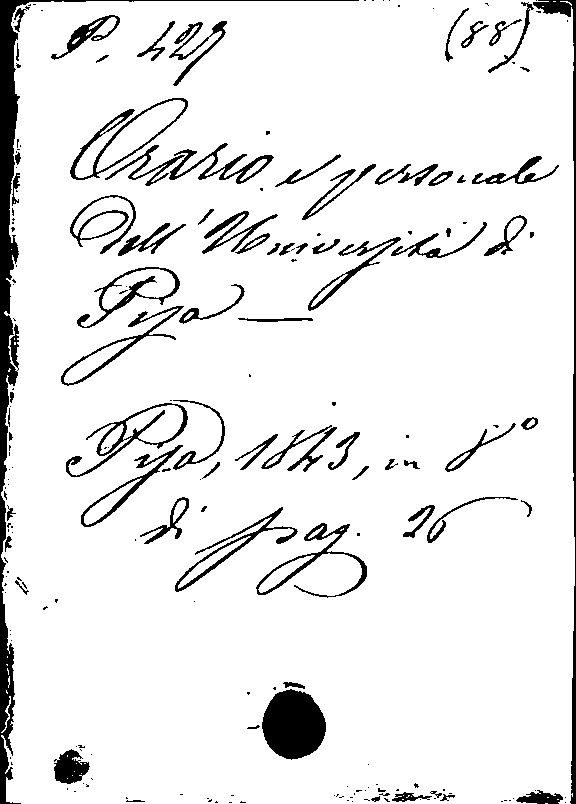 P. 427 (88)
Orario e personale
dell' Università di
Pisa —
Pisa, 1843, in 8º
di pag. 26